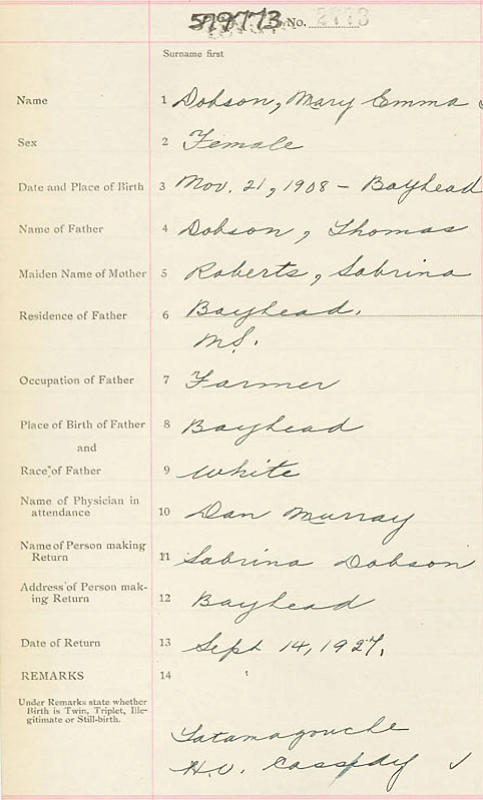 No. 2773
Surname first
Name 1 Dobson, Mary Emma
Sex 2 Female
Date and Place of Birth 3 Nov. 21, 1908 - Bayhead
Name of Father 4 Dobson, Thomas
Maiden Name of Mother 5 Roberts, Sabrina
Residence of Father 6 Bayhead.
N.S.
Occupation of Father 7 Farmer
Place of Birth of Father 8 Bayhead
and
Race of Father 9 White
Name of Physician in
attendance 10 Dan Murray
Name of Person making
Return 11 Sabrina Dobson
Address of Person mak-
ing Return 12 Bayhead
Date of Return 13 Sept 14, 1927.
REMARKS 14
Under Remarks state whether
Birth is Twin, Triplet, Ille-
gitimate or Still-birth.
Tatamagouche
H.V. Cassidy ✓